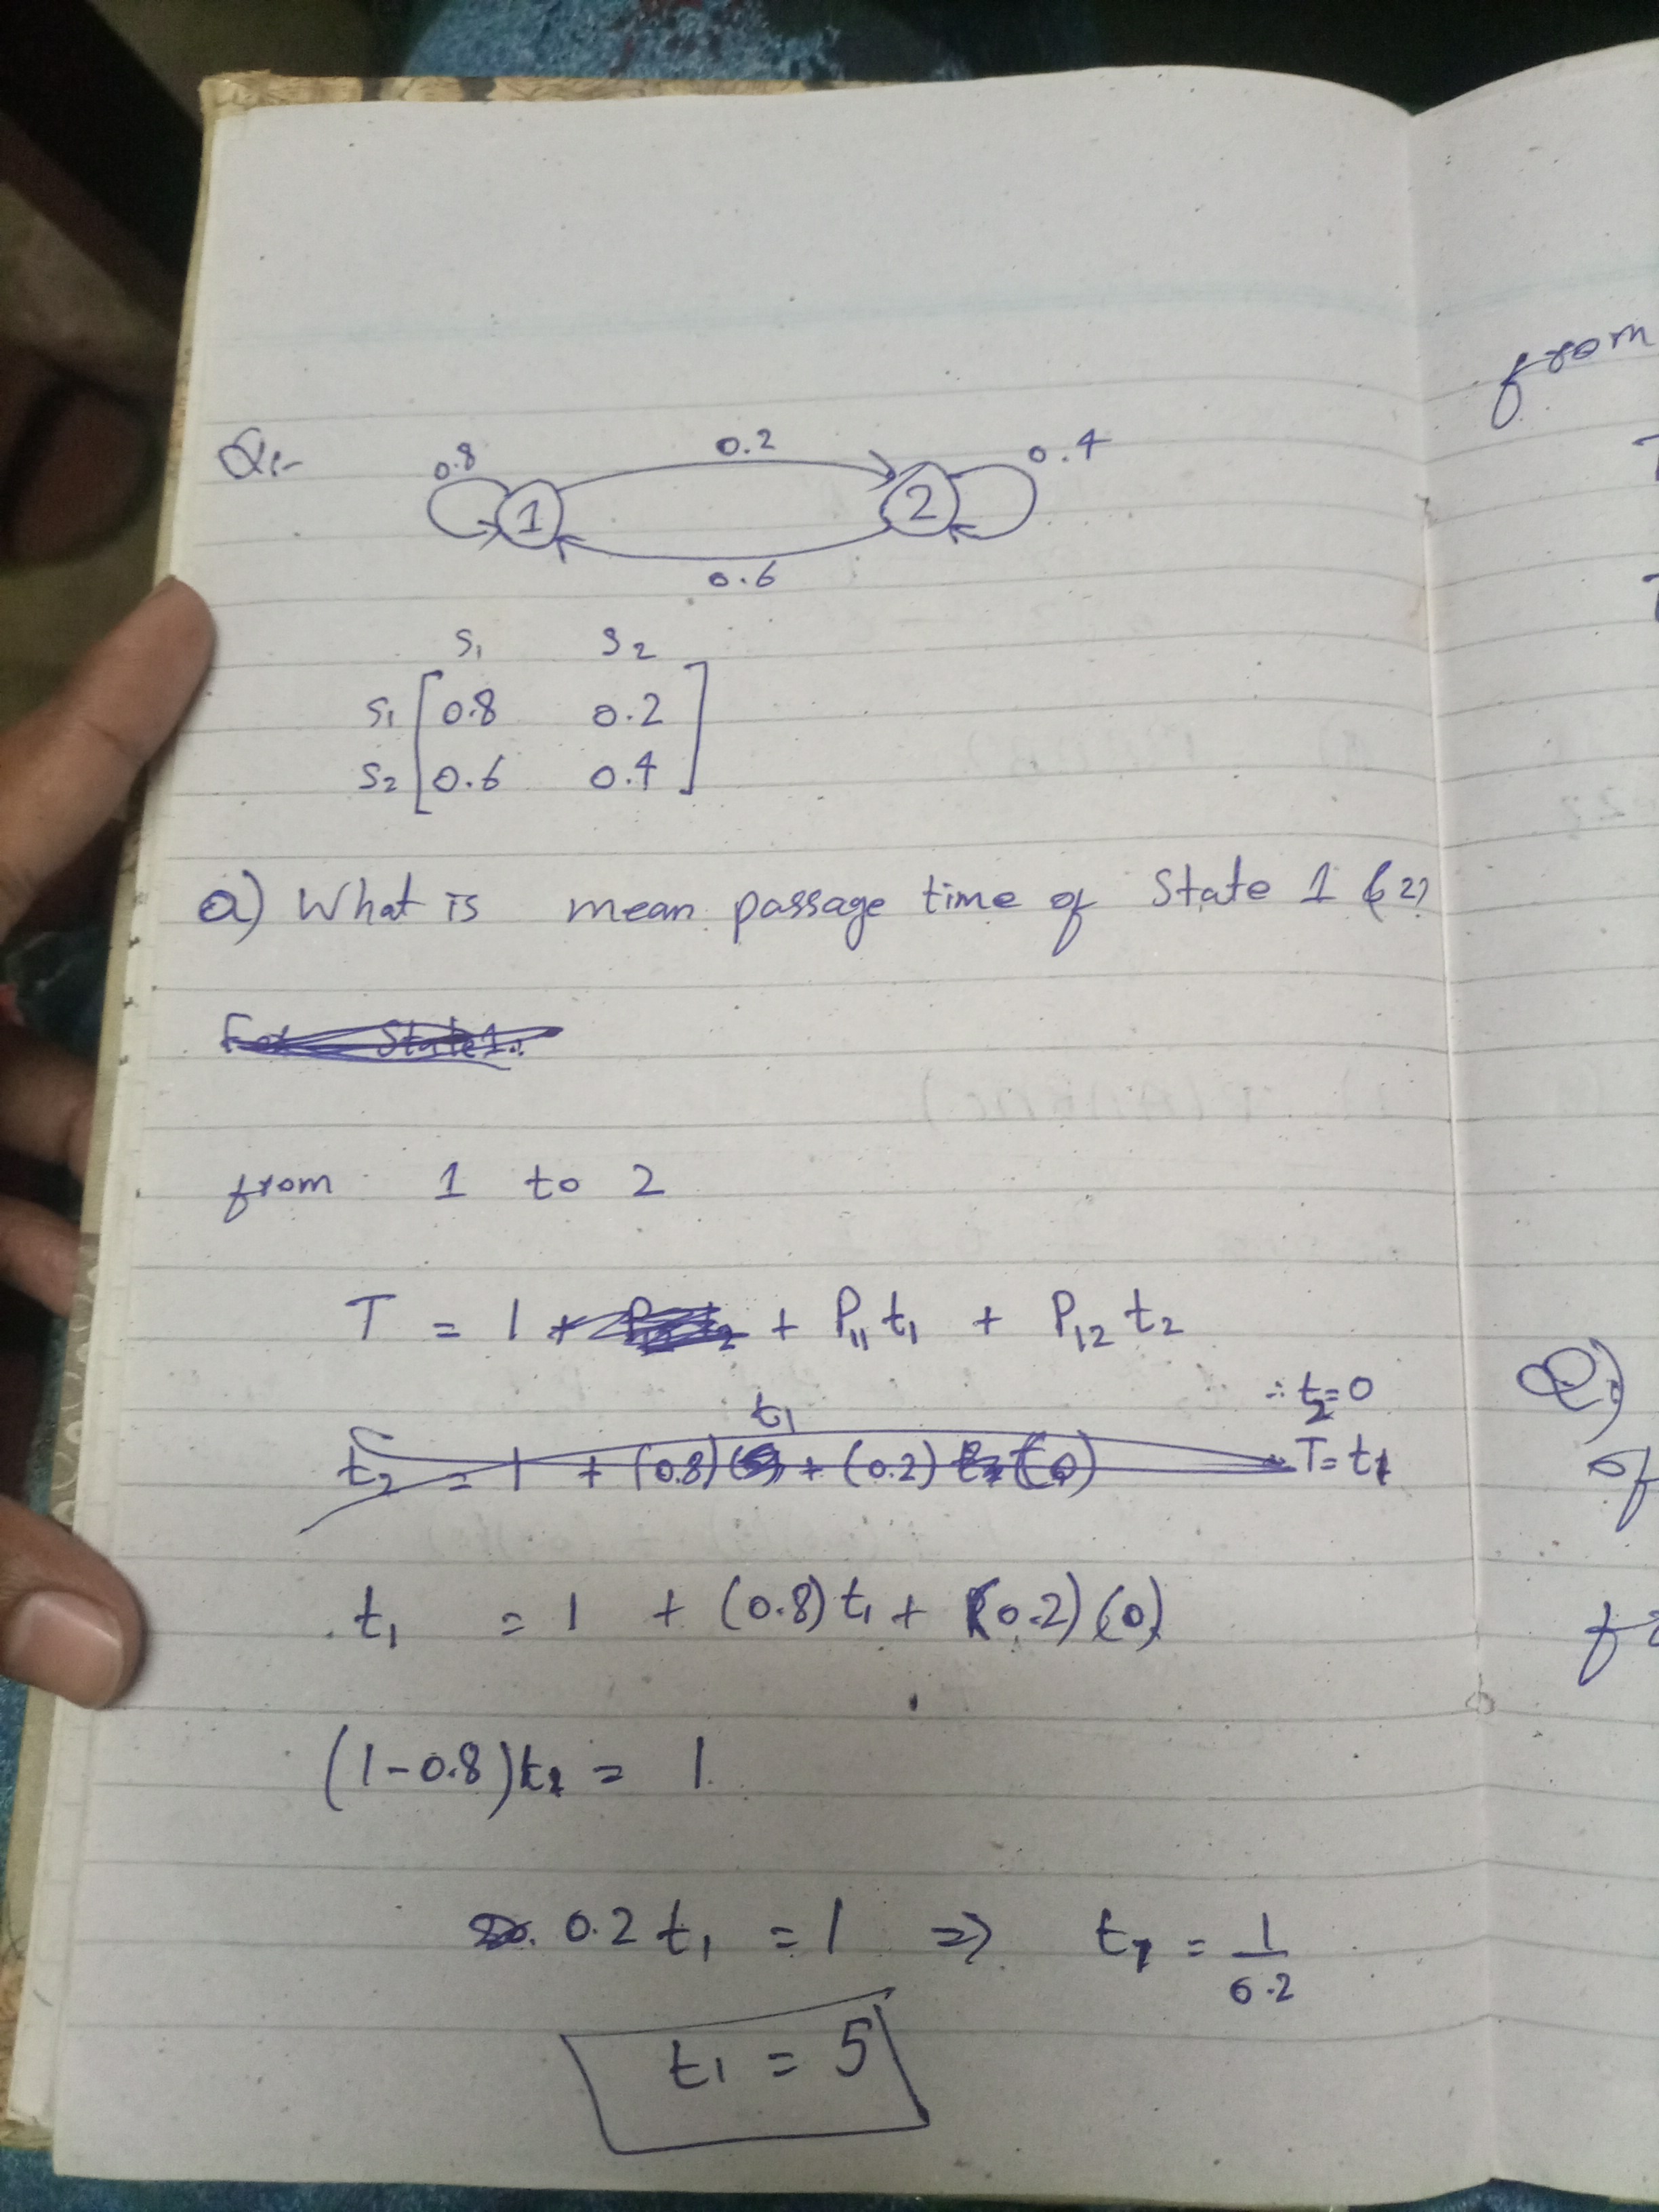 Q:-
0.8 0.2 0.4
1 2
0.6
S₁ S₂
S₁ [0.8 0.2]
S₂ [0.6 0.4]
a) What is mean passage time of State 1 & 2?
from 1 to 2
T = 1 + P₁₁ t₁ + P₁₂ t₂
∴ t₂ = 0
t₂ = 1 + (0.8) t₁ + (0.2) (0) T = t₁
t₁ = 1 + (0.8) t₁ + (0.2) (0)
(1-0.8) t₁ = 1
0.2 t₁ = 1 ⇒ t₁ = 1/0.2
t₁ = 5
from
Q)
of